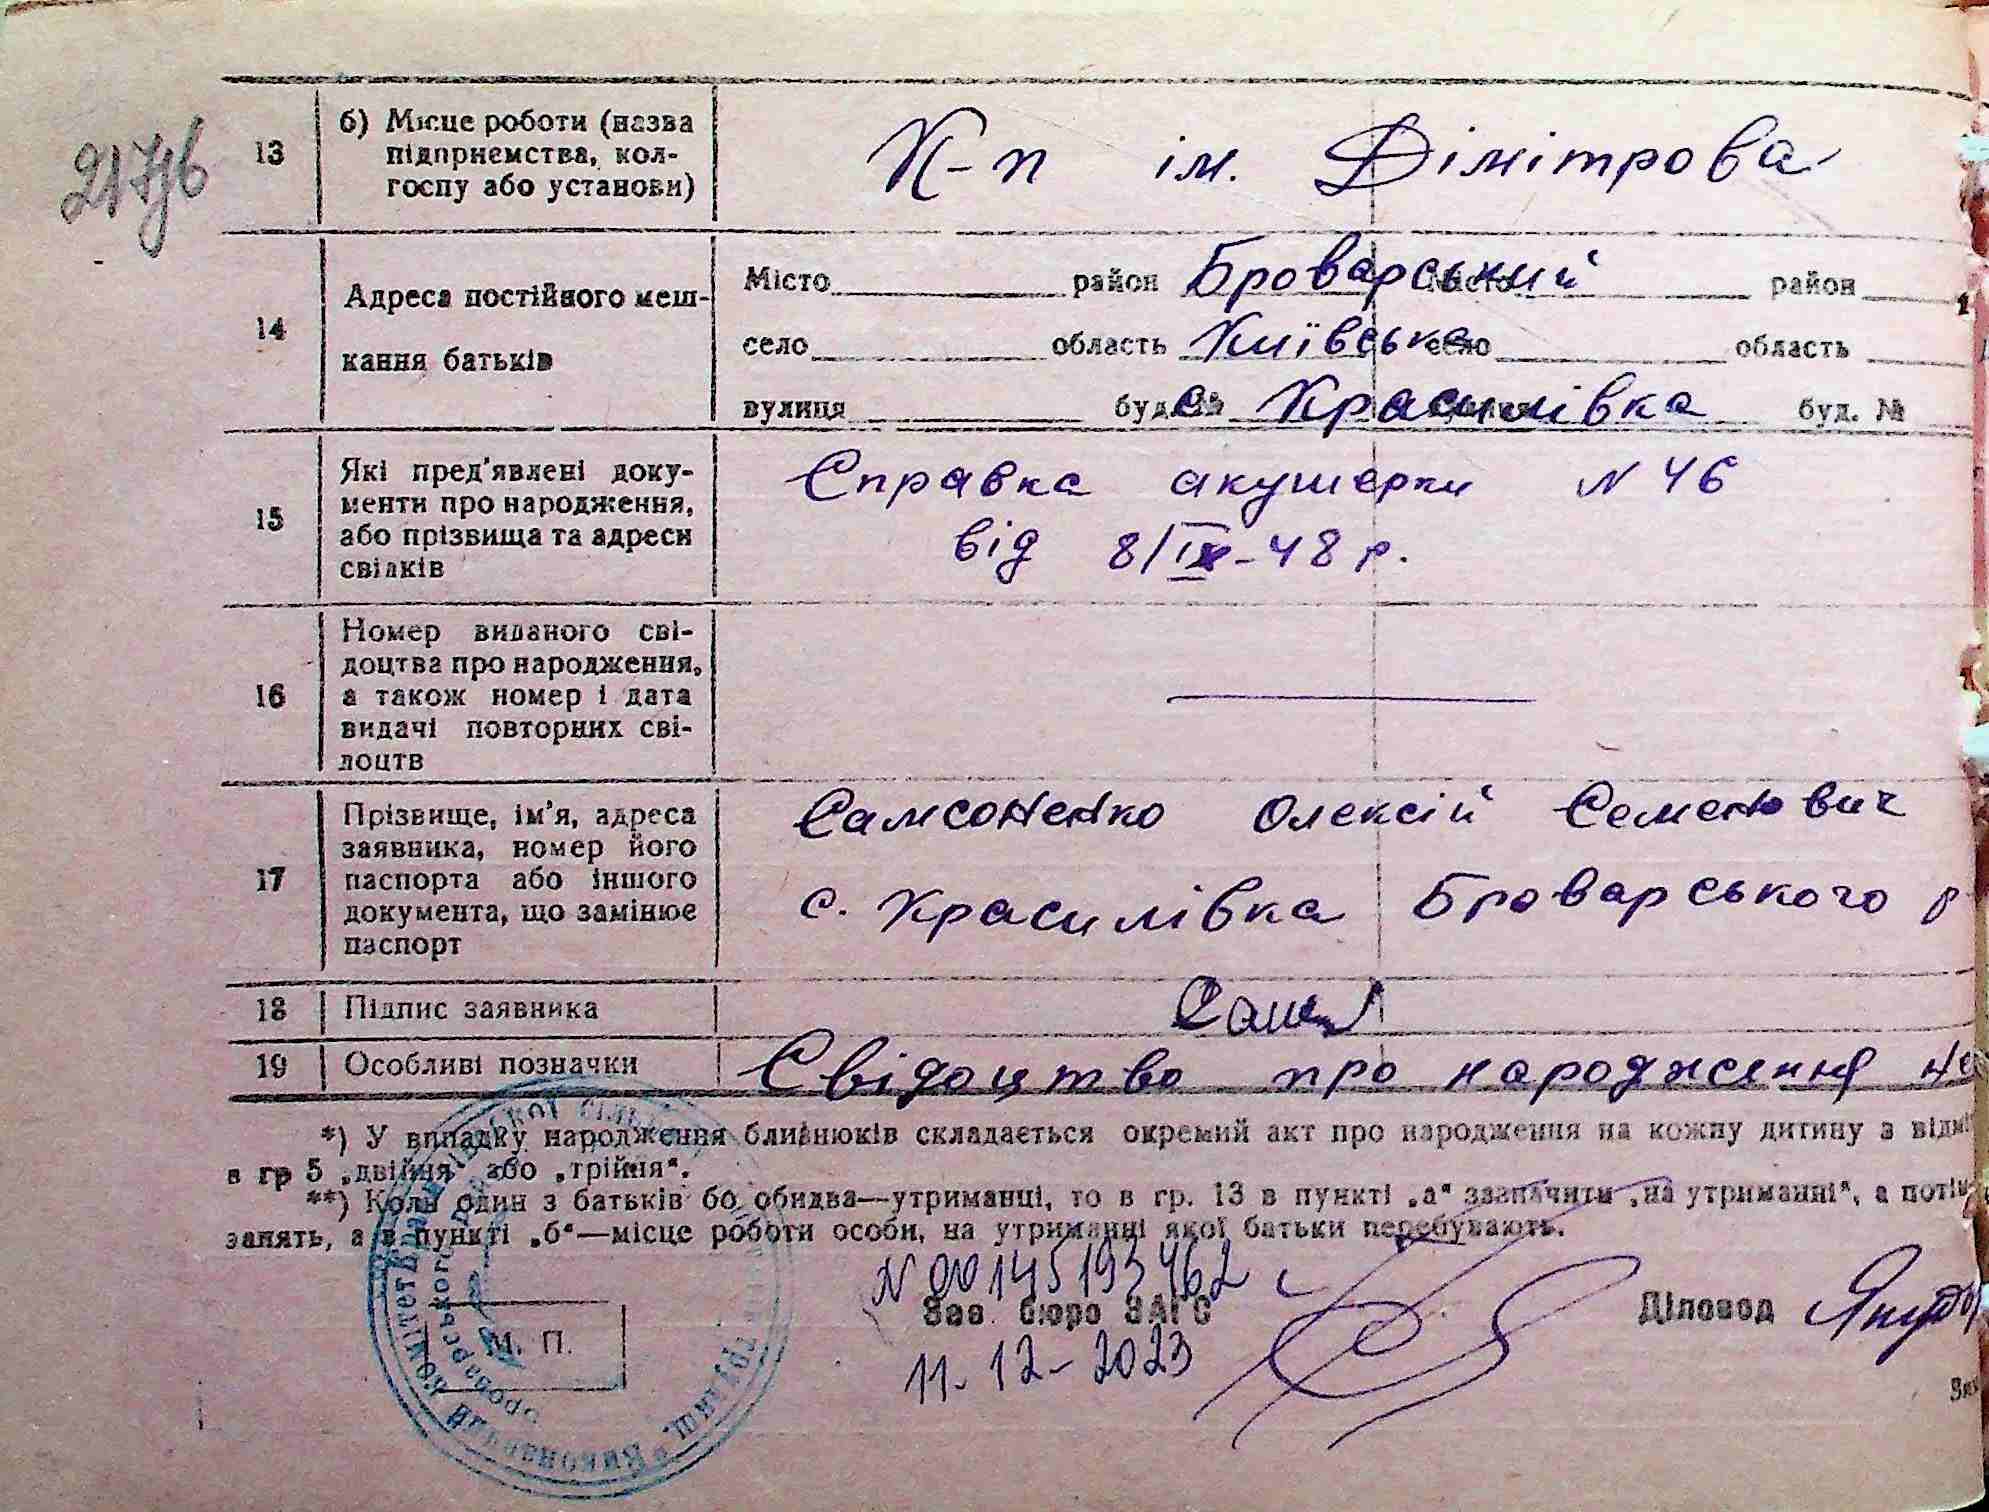 217/б
13 б) Місце роботи (назва підприємства, колгоспу або установи) К-п ім. Дімітрова
14 Адреса постійного мешкання батьків
Місто район Броварський Місто район
село область Київська село область
вулиця буд. № с. Красилівка вулиця буд. №
15 Які пред'явлені документи про народження, або прізвища та адреси свідків
Справка акушерки N 46
від 8/IX-48 р.
16 Номер виданого свідоцтва про народження, а також номер і дата видачі повторних свідоцтв
17 Прізвище, ім'я, адреса заявника, номер його паспорта або іншого документа, що замінює паспорт
Самсоненко Олексій Семенович
с. Красилівка Броварського р
18 Підпис заявника
19 Особливі позначки Свідоцтво про народження
*) У випадку народження близнюків складається окремий акт про народження на кожну дитину з відмі
в гр 5 „двійня" або „трійня".
**) Коли один з батьків бо обидва—утриманці, то в гр. 13 в пункті „а" зазначити „на утриманні", а потім
занять, а в пункті „б"—місце роботи особи, на утриманні якої батьки перебувають.
N 00145193462
Зав. бюро ЗАГС Діловод
М. П.
11-12-2023